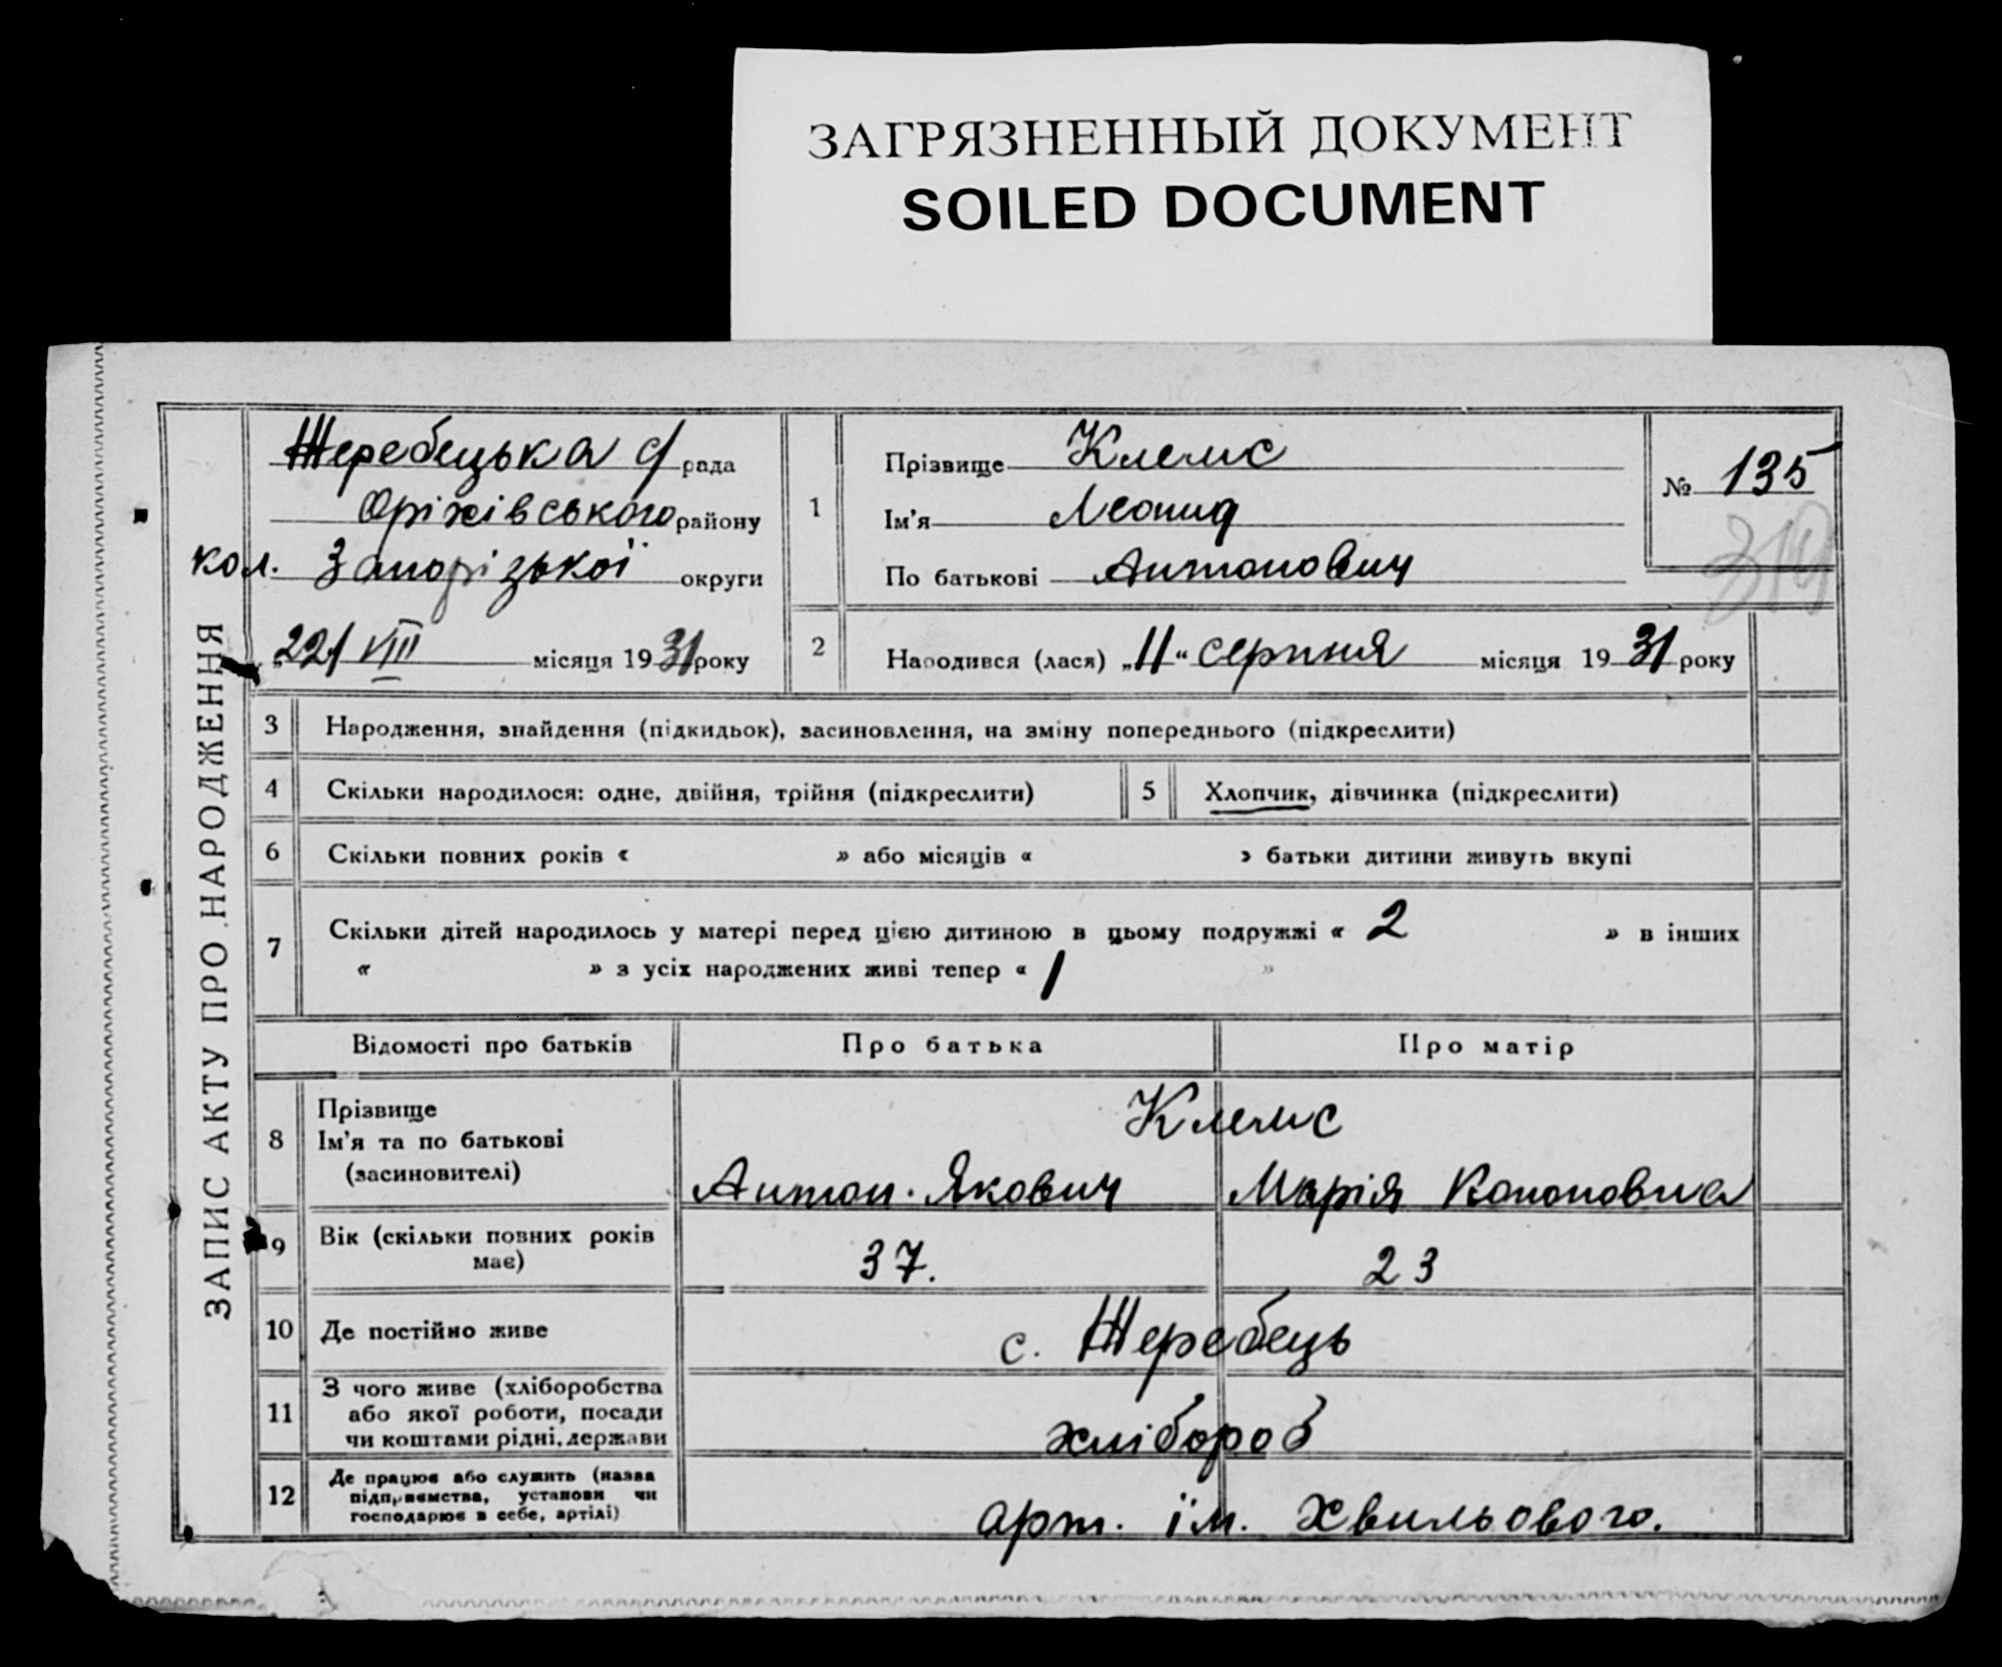 ЗАГРЯЗНЕННЫЙ ДОКУМЕНТ
SOILED DOCUMENT
ЗАПИС АКТУ ПРО НАРОДЖЕННЯ
Жеребецька с/рада
Оріхівського району
кол. Запорізької округи
22/VIII місяця 1931 року
1
Прізвище Клемс
Ім'я Леонид
По батькові Антонович
№ 135
319
2 Народився (лася) „11“ серпня місяця 1931 року
3 Народження, знайдення (підкидьок), засиновлення, на зміну попереднього (підкреслити)
4 Скільки народилося: одне, двійня, трійня (підкреслити)
5 Хлопчик, дівчинка (підкреслити)
6 Скільки повних років « » або місяців « » батьки дитини живуть вкупі
7 Скільки дітей народилось у матері перед цією дитиною в цьому подружжі « 2 » в інших
« » з усіх народжених живі тепер « 1 »
Відомості про батьків Про батька Про матір
8 Прізвище
Ім'я та по батькові
(засиновителі)
Клемс
Антон. Якович Марія Кононовна
9 Вік (скільки повних років
має)
37. 23
10 Де постійно живе с. Жеребець
11 З чого живе (хліборобства
або якої роботи, посади
чи коштами рідні, держави
хлібороб
12 Де працює або служить (назва
підприємства, установи чи
господарює в себе, артілі)
арт. ім. Хвильового.